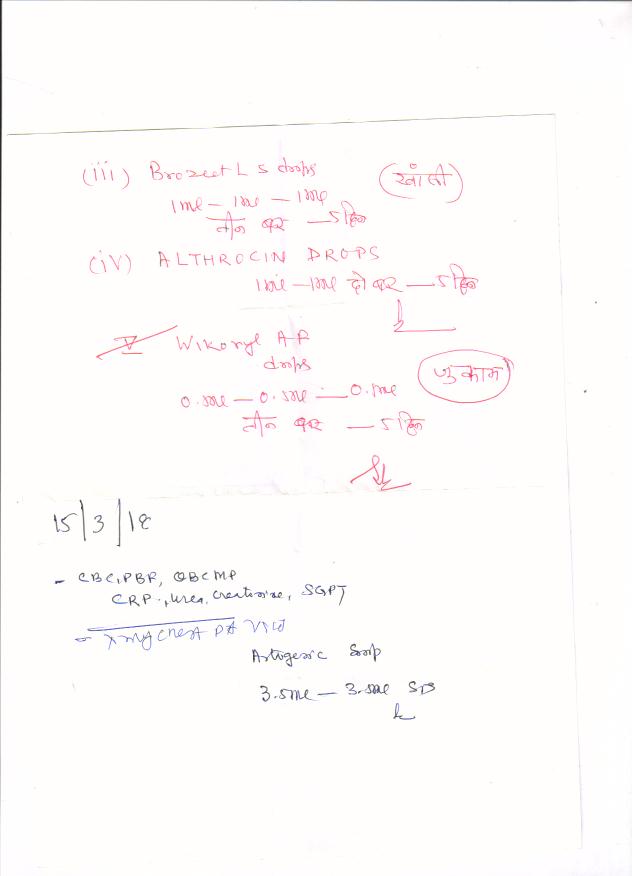 (iii) Brozeet L S drops (खांसी)
1ml – 1ml – 1ml
तीन बार – 5 दिन
(iv) ALTHROCIN DROPS
1ml – 1ml दो बार – 5 दिन
V Wikoryl AF
drops जुकाम
0.5ml – 0.5ml – 0.5ml
तीन बार – 5 दिन
15/3/18
- CBC, PBF, QBCMP
CRP, urea, creatinine, SGPT
- Xray chest PA view
Syrup
3.5ml – 3.5ml SOS